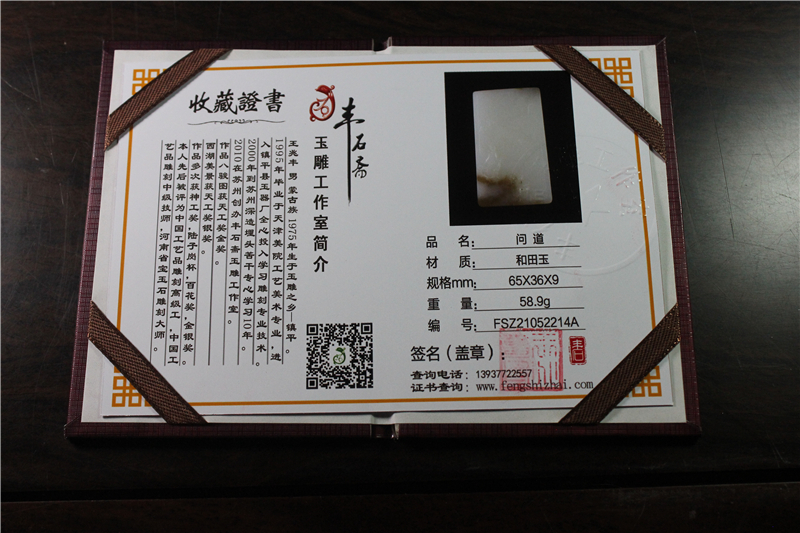 收藏證書
丰石斋
玉雕工作室简介
王兆丰 男 蒙古族 1975年生于玉雕之乡—镇平。
1995年毕业于天津美院工艺美术专业，进
入镇平县玉器厂全心投入学习雕刻专业技术。
2000年到苏州深造埋头苦干专心学习10年。
2010在苏州创办丰石斋玉雕工作室。
作品八骏图获天工奖金奖。
西湖美景获天工奖银奖。
作品多次获神工奖，陆子岗杯，百花奖，金银奖。
本人先后被评为中国工艺品雕刻高级工，中国工
艺品雕刻中级技师，河南省宝玉石雕刻大师。
品 名： 问道
材 质： 和田玉
规格mm： 65X36X9
重 量： 58.9g
编 号： FSZ21052214A
签名（盖章）：
查询电话：13937722557
证书查询：www.fengshizhai.com